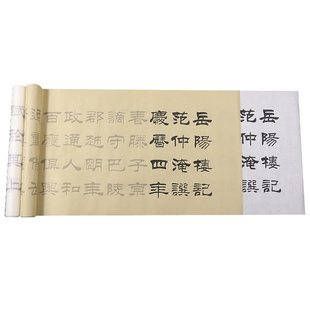 岳陽樓記
范仲淹譔
岳陽樓記
范仲淹譔
慶曆四年
春滕子京
謫守巴陵
郡越朙年
政通人和
百廢俱興